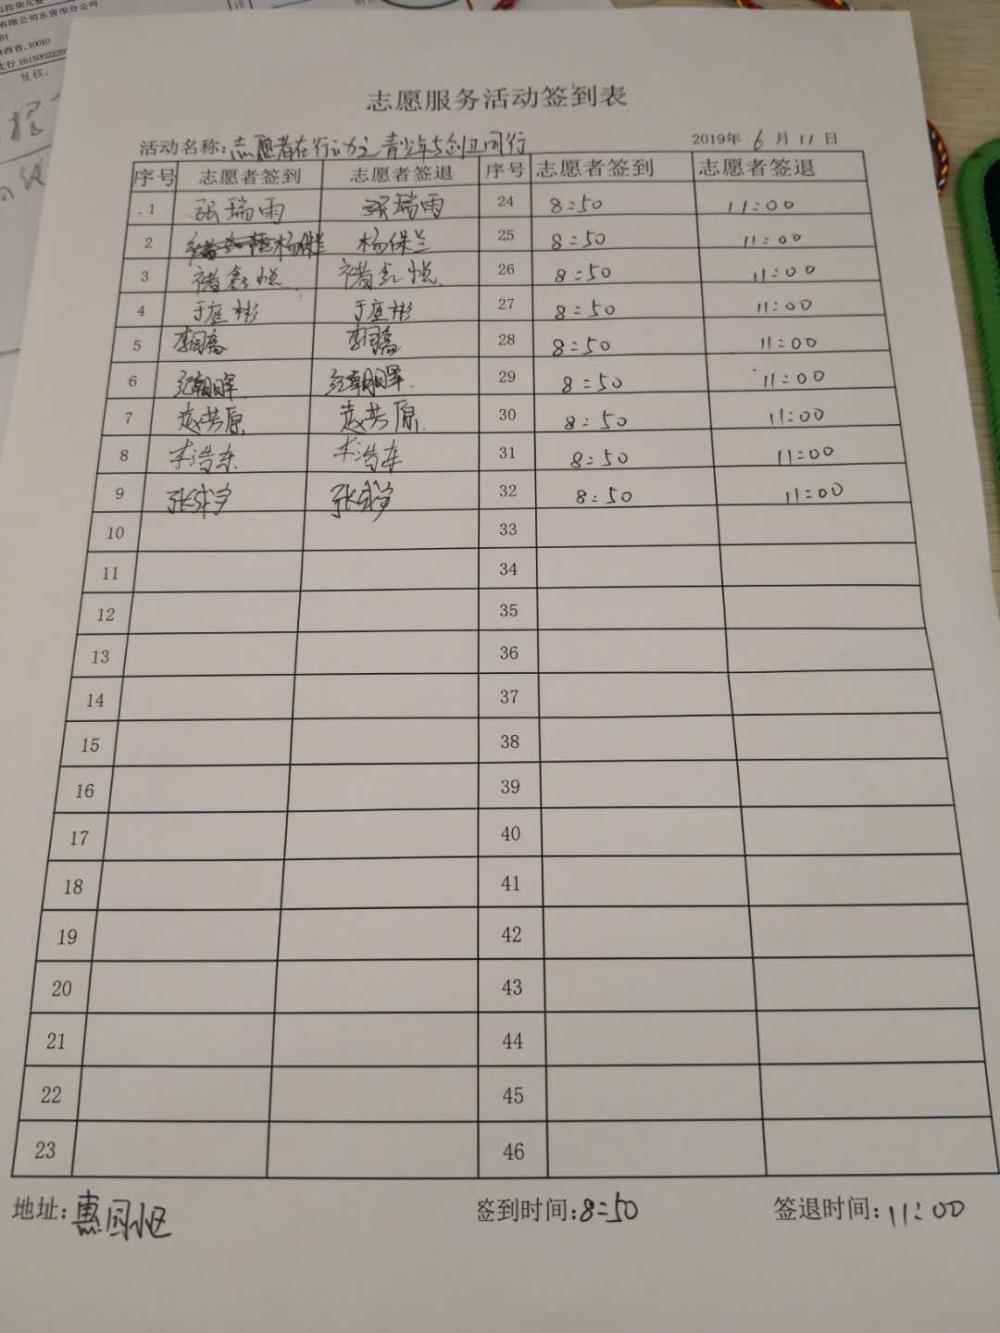 有限公司东营市分公司
复核:
志愿服务活动签到表
活动名称:志愿者在行动之青少年与创卫同行
2019年 6 月 11 日
序号 志愿者签到 志愿者签退 序号 志愿者签到 志愿者签退
1 张瑞雨 张瑞雨 24 8:50 11:00
2 杨保兰 杨保兰 25 8:50 11:00
3 褚鑫悦 褚鑫悦 26 8:50 11:00
4 于庭彬 于庭彬 27 8:50 11:00
5 28 8:50 11:00
6 29 8:50 11:00
7 30 8:50 11:00
8 李浩东 李浩东 31 8:50 11:00
9 32 8:50 11:00
10 33
11 34
12 35
13 36
14 37
15 38
16 39
17 40
18 41
19 42
20 43
21 44
22 45
23 46
地址:惠园小区 签到时间:8:50 签退时间:11:00